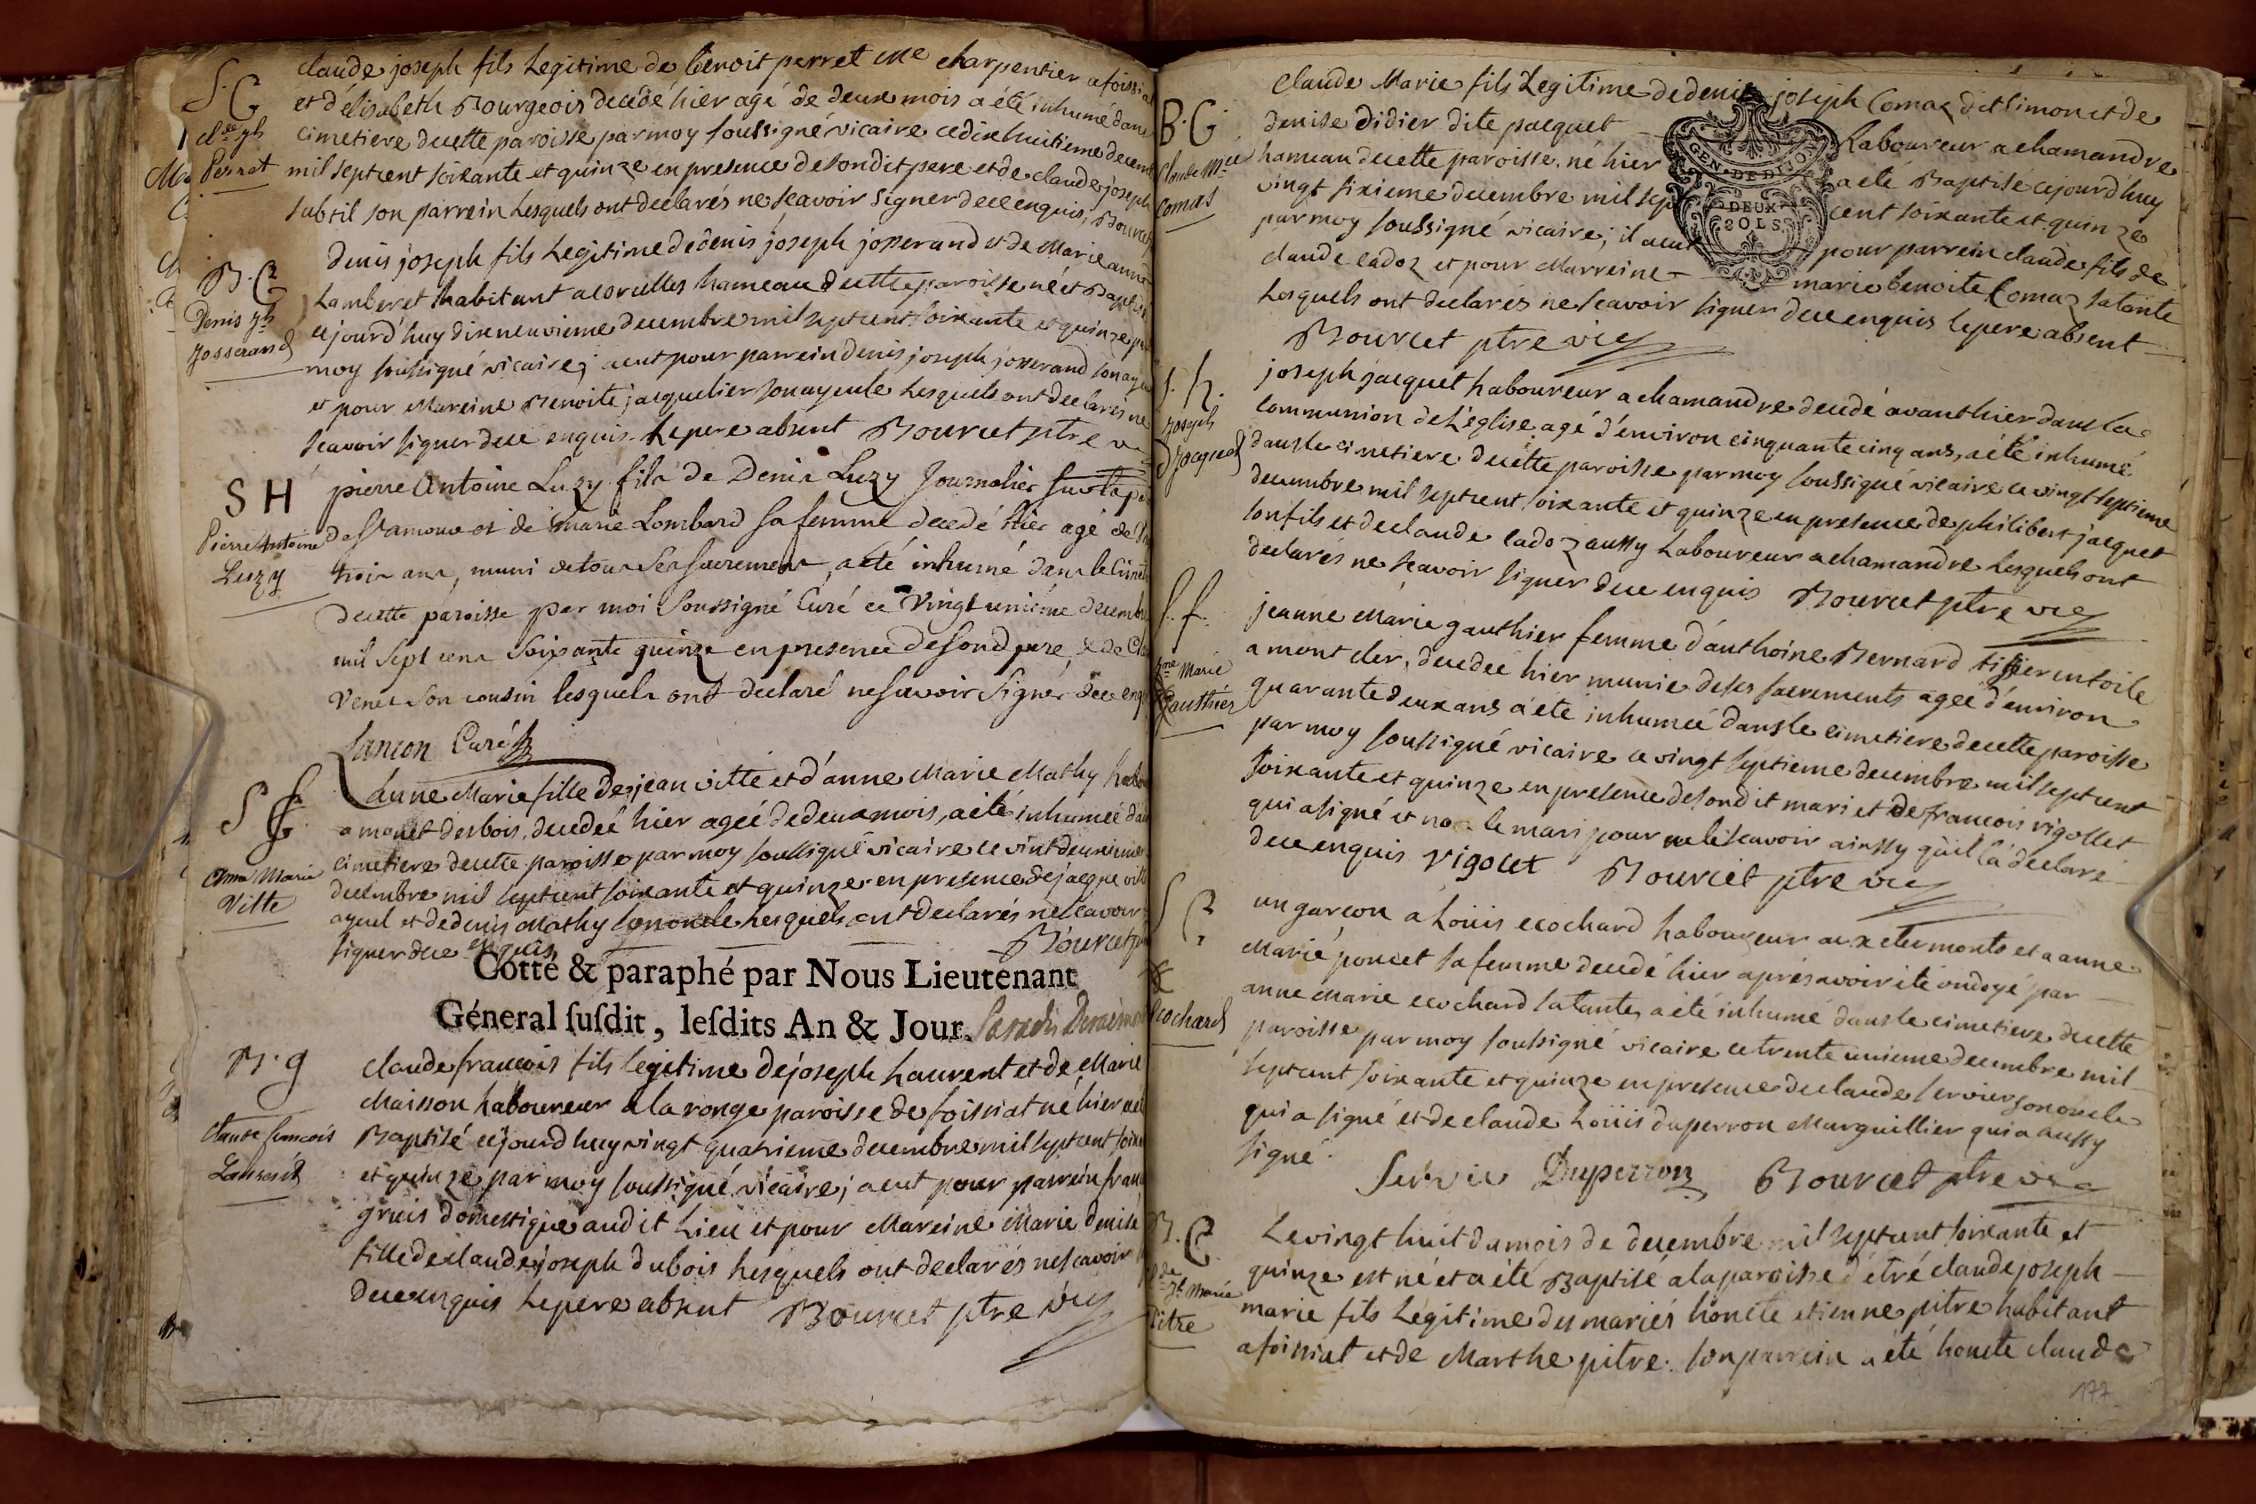 S. G
Cl.de jph
Perrat
claude joseph fils Legitime de benoit perret Me charpentier a foissiat
et d'elisabeth Bourgeois decedé hier agé de deux mois a été inhumé dans
cimetiere decette paroisse par moy soussigné vicaire ce dix huitieme decemb
mil sept cent soixante et quinze en presence de son dit pere et de claude joseph
subtil son parrein Lesquels ont declarés ne scavoir signer de ce enquis, Bourcet
B. G
Denis jph
Josserand
denis joseph fils Legitime de denis joseph josserand et de Marie anne
Lamberet habitant a corcelles hameau decette paroisse né et Baptisé
cejourd'huy dix neuvieme decembre mil sept cent soixante et quinze par
moy soussigné vicaire; a eut pour parrein denis joseph josserand son ayeul
et pour Mareine Benoite jacquelier son ayeule Lesquels ont declarés ne
scavoir signer de ce enquis. Le pere absent Bourcet ptre v
S H
Pierre Antoine
Luzy
pierre Antoine Luzy fils de Denis Luzy Journalier sur la p
de St amour et de marie Lombard sa femme decedé hier agé de
trois ans, muni de tous ses sacremens, a été inhumé dans le Cimet
decette paroisse par moi Soussigné Curé ce Vingt unieme decembre
mil Sept cens Soixante quinze en presence de sond pere, & de Cl
Venet son cousin lesquels ont declaré ne savoir Signer de ce enq
Lancon Curé
S f
Anne Marie
Vitte
anne Marie fille de jean vitte et d'anne Marie Mathy habo
a monet des bois, decedeé hier ageé de deux mois, a été inhumeé da
cimetiere decette paroisse par moy soussigné vicaire ce vint deuxieme
decembre mil sept cent soixante et quinze en presence de jacque vitte
ayeul et de denis Mathy son oncle Lesquels ont declarés ne scavoir
signer de ce enquis Bourcet p
Cotté & paraphé par Nous Lieutenant
Géneral susdit, lesdits An & Jour.
B. g
claude francois
Laurent
claude francois fils legitime de joseph Laurent et de Marie
Maisson Laboureur a la ronge paroisse de foissiat né hier
Baptisé cejourd huy vingt quatrieme decembre mil sept cent soix
et quinze par moy soussigné vicaire; a eut pour parrein fran
gruis domestique audit Lieu et pour Mareine Marie denise
fille de claude joseph dubois Lesquels ont declarés ne scavoir
de ce enquis Le pere absent Bourcet ptre vic
B. G
Claude Mrie
Comas
claude Marie fils Legitime de denis joseph Comaz dit simon et de
denise didier dite pacquet Laboureur a chamandre
hameau decette paroisse. né hier a été Baptisé cejourd'huy
vingt sixieme decembre mil sept cent soixante et quinze
par moy soussigné vicaire; il a eut pour parrein claude fils de
claude cadoz et pour Marreine marie benoite Comaz sa tante
Lesquels ont declarés ne scavoir signer de ce enquis le pere absent
Bourcet ptre vic
GEN. DE DIJON
DEUX
SOLS.
S. h.
Joseph
Jacquet
joseph jacquet Laboureur a chamandre decedé avant hier dans la
communion de L'église, agé d'environ cinquante cinq ans, a été inhumé
dans le cimetiere decette paroisse par moy soussigné vicaire ce vingt septieme
decembre mil sept cent soixante et quinze en presence de philibert jacquet
son fils et de claude cadoz aussy Laboureur a chamandre Lesquels ont
declarés ne scavoir signer de ce enquis Bourcet ptre vic
S. f.
Jne Marie
Gauthier
jeanne Marie gauthier femme d'anthoine Bernard tissier en toile
a mont cler, decedeé hier munie de ses sacrements ageé d'environ
quarante deux ans a été inhumeé dans le cimetiere decette paroisse
par moy soussigné vicaire ce vingt septieme decembre mil sept cent
soixante et quinze en presence de son dit mari et de francois vigollet
qui a signé et non le mari pour ne le scavoir ainssy qu'il l'a declaré
de ce enquis vigolet Bourcet ptre vic
S G
Ecochard
un garcon a Loüis ecochard Laboureur aux clermonts et a anne
Marie poncet sa femme decedé hier aprés avoir été ondoyé par
anne Marie ecochard sa tante, a été inhumé dans le cimetiere decette
paroisse par moy soussigné vicaire ce trente unieme decembre mil
sept cent soixante et quinze en presence de claude servier son oncle
qui a signé et de claude Loüis duperron Marguillier qui a aussy
signé. Servie Duperron Bourcet ptre vic
B. G
Cl.de Jh Marie
Pitre
Le vingt huit du mois de decembre mil sept cent soixante et
quinze est né et a été Baptisé a la paroisse d'etré claude joseph
marie fils Légitime des mariés honete etienne pitre habitant
a foissiat et de Marthe pitre. son parrein a été honete claude
177